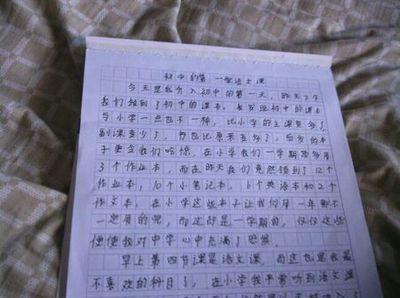 初中的第一堂语文课
今天是我升入初中的第一天，昨天下午
我们领到了初中的课本，我发现初中的课本
与小学一点也不一样，比小学的主课更多了，
副课更少了，书包比原来重多了，后发的本
子更令我们吃惊，在小学我们一学期顶多用
3个作业本，而在昨天我们竟然领到了12个
作业本，10个小笔记本，6个英语本和2个
作文本，在小学这些本子让我们用一年都不
一定用的完，而这却是一学期的，仅仅这些
便使我对中学心中充满了恐惧。
早上第四节课是语文课，而这也是我最
不喜欢的科目了，在小学我平常听到语文课